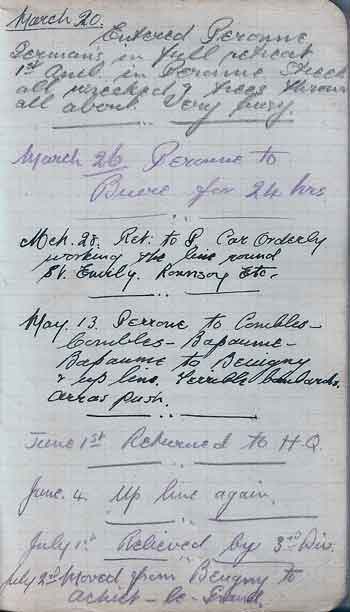 March 20.
Entered Peronne
Germans in full retreat
1st Amb. in Peronne. Streets
all wrecked & trees thrown
all about. Very busy.
March 26. Peronne to
Buere for 24 hrs.
Mch. 28. Ret. to P. Car Orderly
working the line round
St. Emily. Ronnsoy Etc.
May. 13. Perrone to Combles-
Combles - Bapaume-
Bapaume to Beuigny
& up line. Terrible bombards.
arras push.
June 1st Returned to H.Q.
June. 4. Up line again.
July 1st Relieved by 3rd Div.
July 2nd Moved from Beugny to
Achiet - le - Grand.